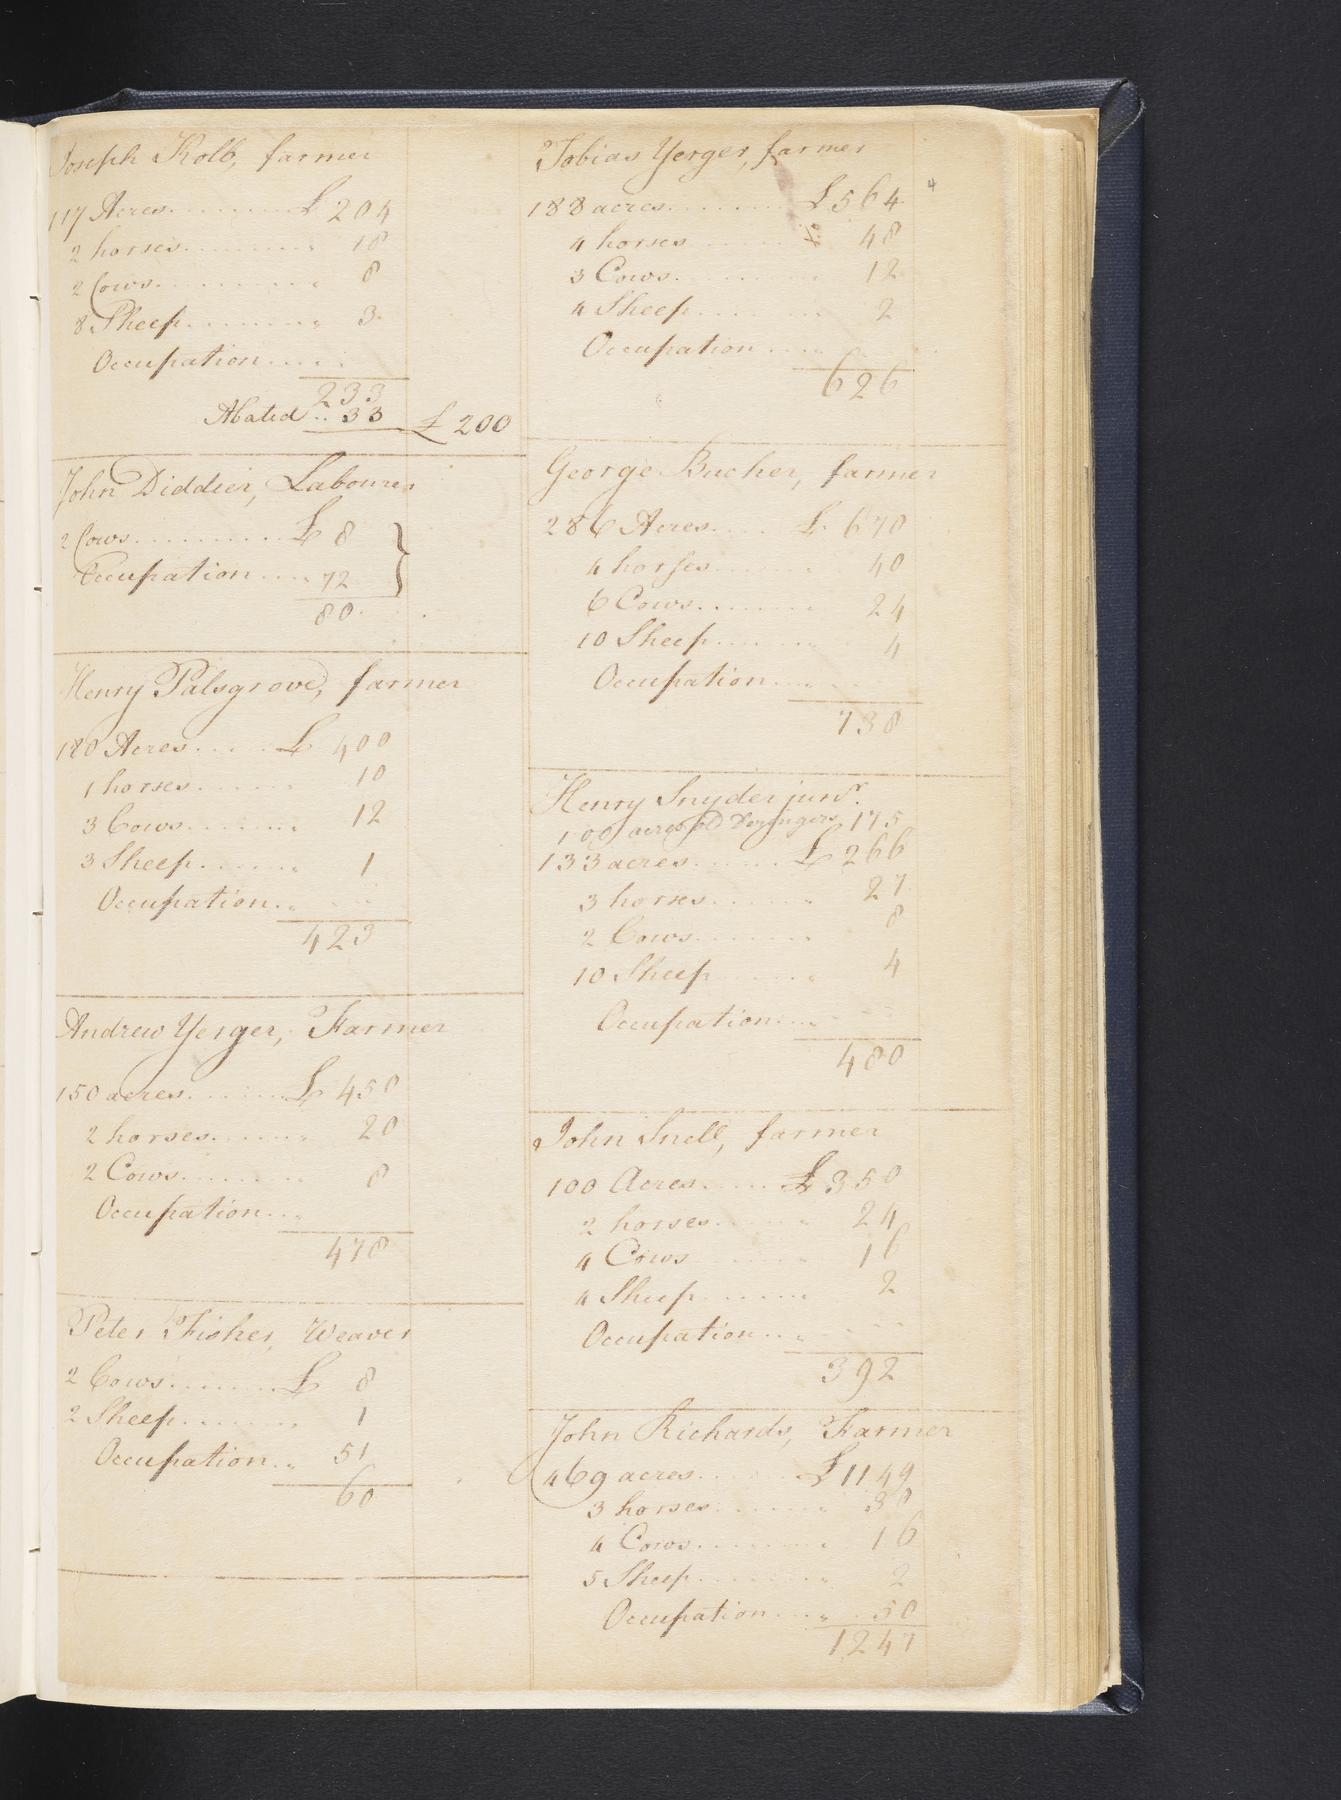 Joseph Kolb, farmer
117 Acres........£ 204
2 horses........ 18
2 Cows........ 8
8 Sheep........ 3
Occupation....
233
Abated .. 33 £ 200
John Diddier, Labourer
2 Cows........£ 8
Occupation.... 72
80
Henry Palsgrove, farmer
180 Acres.... £ 400
1 horses...... 10
3 Cows...... 12
3 Sheep...... 1
Occupation..
423
Andrew Yerger, Farmer
150 acres......£ 450
2 horses...... 20
2 Cows...... 8
Occupation...
478
Peter Fisher, Weaver
2 Cows......£ 8
2 Sheep...... 1
Occupation.. 51
60
Tobias Yerger, farmer
4
188 acres........£ 564
4 horses 48
3 Cows...... 12
4 Sheep...... 2
Occupation....
626
George Bucher, farmer
286 Acres.... £ 670
4 horses...... 40
6 Cows...... 24
10 Sheep.... 4
Occupation....
738
Henry Snyder junr.
100 acres 175
133 acres......£ 266
3 horses...... 27
2 Cows...... 8
10 Sheep 4
Occupation....
480
John Snell, farmer
100 Acres.....£ 350
2 horses...... 24
4 Cows 16
4 Sheep...... 2
Occupation...
392
John Richards, Farmer
469 acres......£ 1149
3 horses...... 30
4 Cows...... 16
5 Sheep...... 2
Occupation.... 50
1247